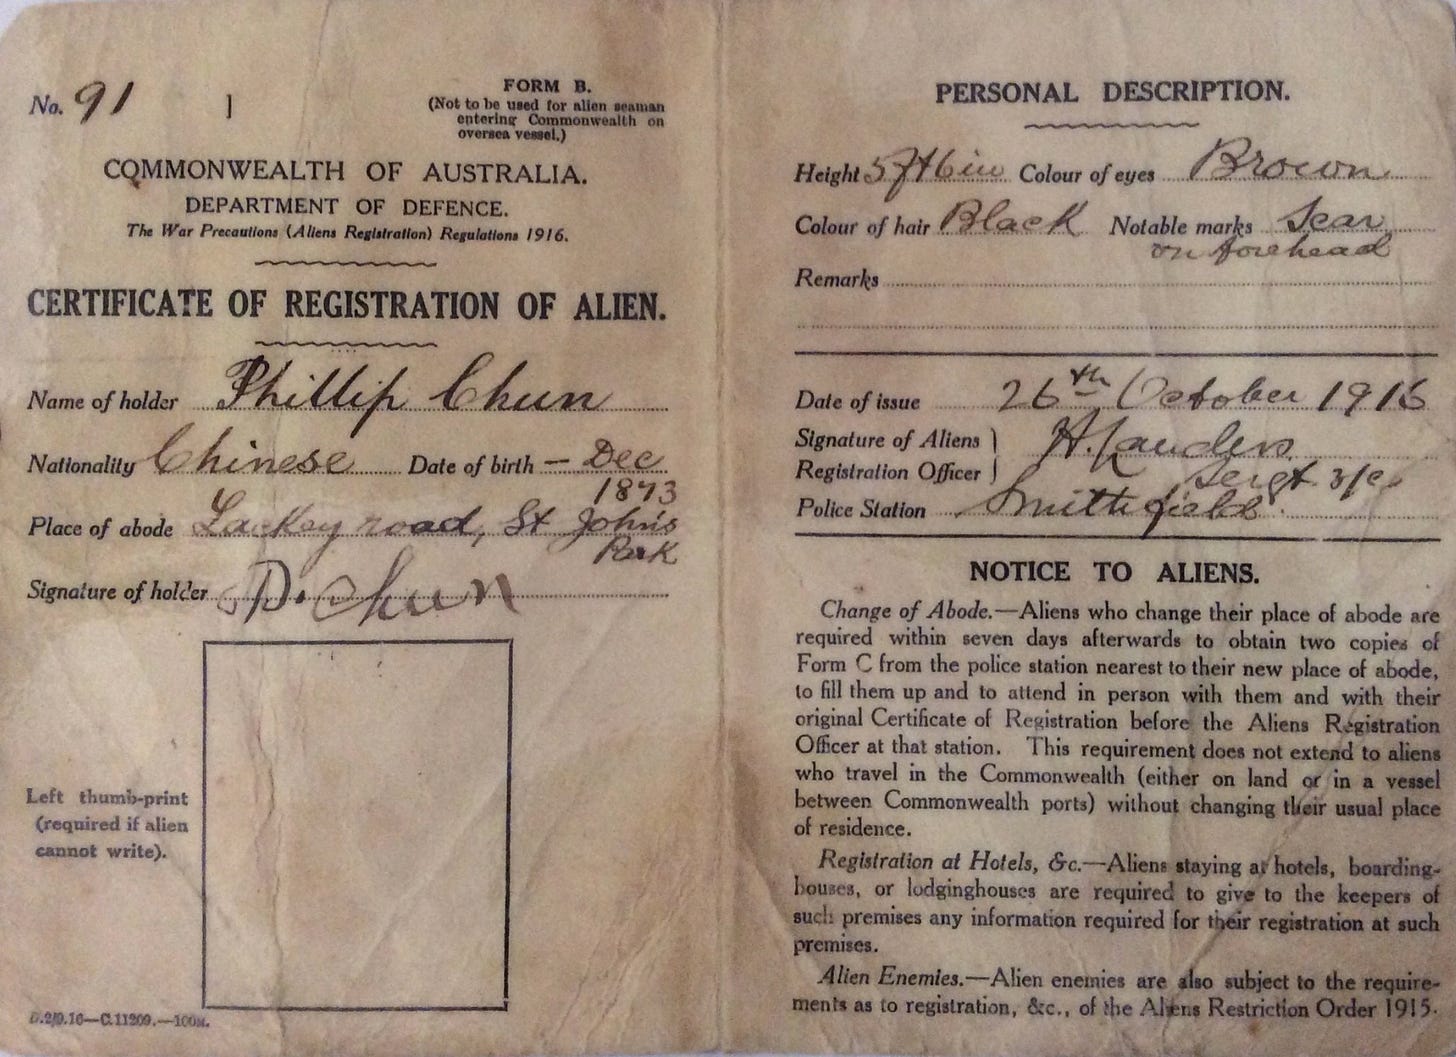 No. 91
FORM B.
(Not to be used for alien seaman
entering Commonwealth on
oversea vessel.)
COMMONWEALTH OF AUSTRALIA.
DEPARTMENT OF DEFENCE.
The War Precautions (Aliens Registration) Regulations 1916.
CERTIFICATE OF REGISTRATION OF ALIEN.
Name of holder Phillip Chun
Nationality Chinese Date of birth - Dec
1873
Place of abode Lackey road, St John's
Park
Signature of holder P. Chun
Left thumb-print
(required if alien
cannot write).
D.2/9.16—C.11209.—100M.
PERSONAL DESCRIPTION.
Height 5ft 6in Colour of eyes Brown
Colour of hair Black Notable marks Scar
on forehead
Remarks
Date of issue 26th October 1916
Signature of Aliens
Registration Officer
Sergt 3/c
Police Station Smithfield
NOTICE TO ALIENS.
Change of Abode.—Aliens who change their place of abode are
required within seven days afterwards to obtain two copies of
Form C from the police station nearest to their new place of abode,
to fill them up and to attend in person with them and with their
original Certificate of Registration before the Aliens Registration
Officer at that station. This requirement does not extend to aliens
who travel in the Commonwealth (either on land or in a vessel
between Commonwealth ports) without changing their usual place
of residence.
Registration at Hotels, &c.—Aliens staying at hotels, boarding-
houses, or lodginghouses are required to give to the keepers of
such premises any information required for their registration at such
premises.
Alien Enemies.—Alien enemies are also subject to the require-
ments as to registration, &c., of the Aliens Restriction Order 1915.